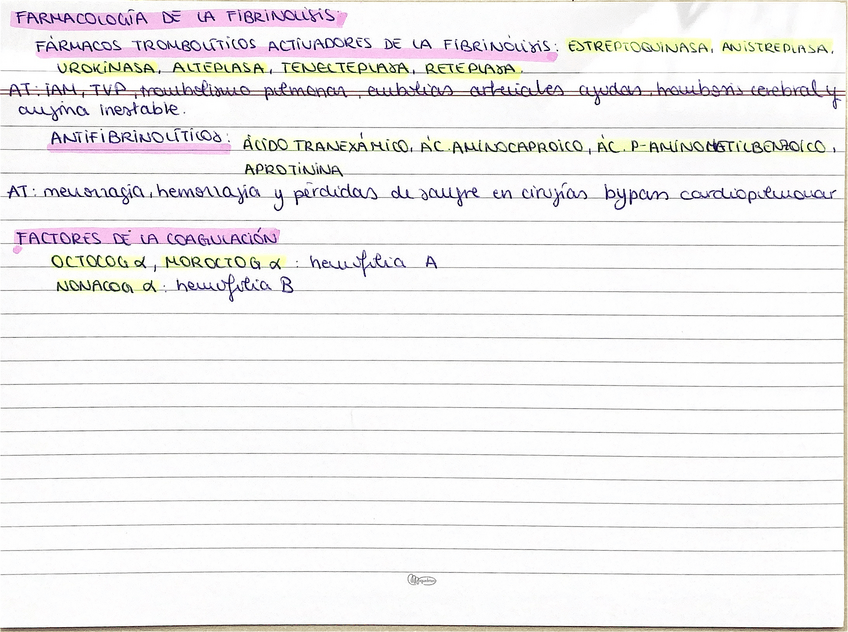 FARMACOLOGÍA DE LA FIBRINOLISIS:
FÁRMACOS TROMBOLÍTICOS ACTIVADORES DE LA FIBRINOLISIS: ESTREPTOQUINASA, ANISTREPLASA,
UROKINASA, ALTEPLASA, TENECTEPLASA, RETEPLASA.
AT: IAM, TVP, trombolismo pulmonar, embolias arteriales agudas, trombosis cerebral y
angina inestable.
ANTIFIBRINOLÍTICOS: ÁCIDO TRANEXÁMICO, ÁC. AMINOCAPROICO, ÁC. P-AMINOMETILBENZOICO,
APROTININA
AT: menorragia, hemorragia y pérdidas de sangre en cirugías bypass cardiopulmonar
FACTORES DE LA COAGULACIÓN
OCTOCOG α, MOROCTOG α : hemofilia A
NONACOG α : hemofilia B